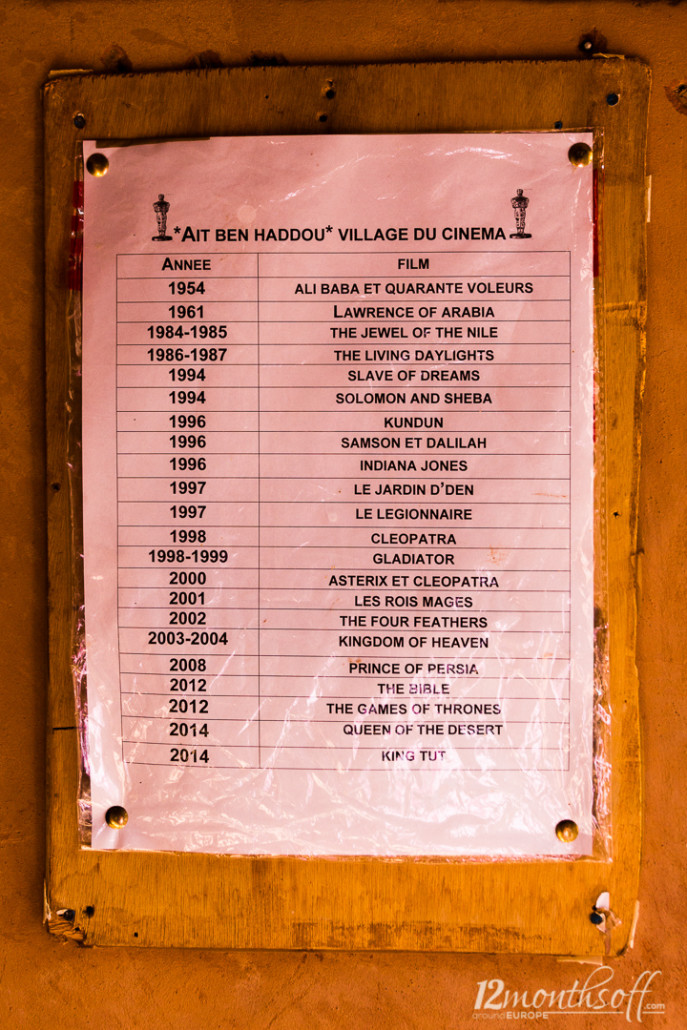 *AIT BEN HADDOU* VILLAGE DU CINEMA
ANNEE FILM
1954 ALI BABA ET QUARANTE VOLEURS
1961 LAWRENCE OF ARABIA
1984-1985 THE JEWEL OF THE NILE
1986-1987 THE LIVING DAYLIGHTS
1994 SLAVE OF DREAMS
1994 SOLOMON AND SHEBA
1996 KUNDUN
1996 SAMSON ET DALILAH
1996 INDIANA JONES
1997 LE JARDIN D'DEN
1997 LE LEGIONNAIRE
1998 CLEOPATRA
1998-1999 GLADIATOR
2000 ASTERIX ET CLEOPATRA
2001 LES ROIS MAGES
2002 THE FOUR FEATHERS
2003-2004 KINGDOM OF HEAVEN
2008 PRINCE OF PERSIA
2012 THE BIBLE
2012 THE GAMES OF THRONES
2014 QUEEN OF THE DESERT
2014 KING TUT
12monthsoff.com
around EUROPE